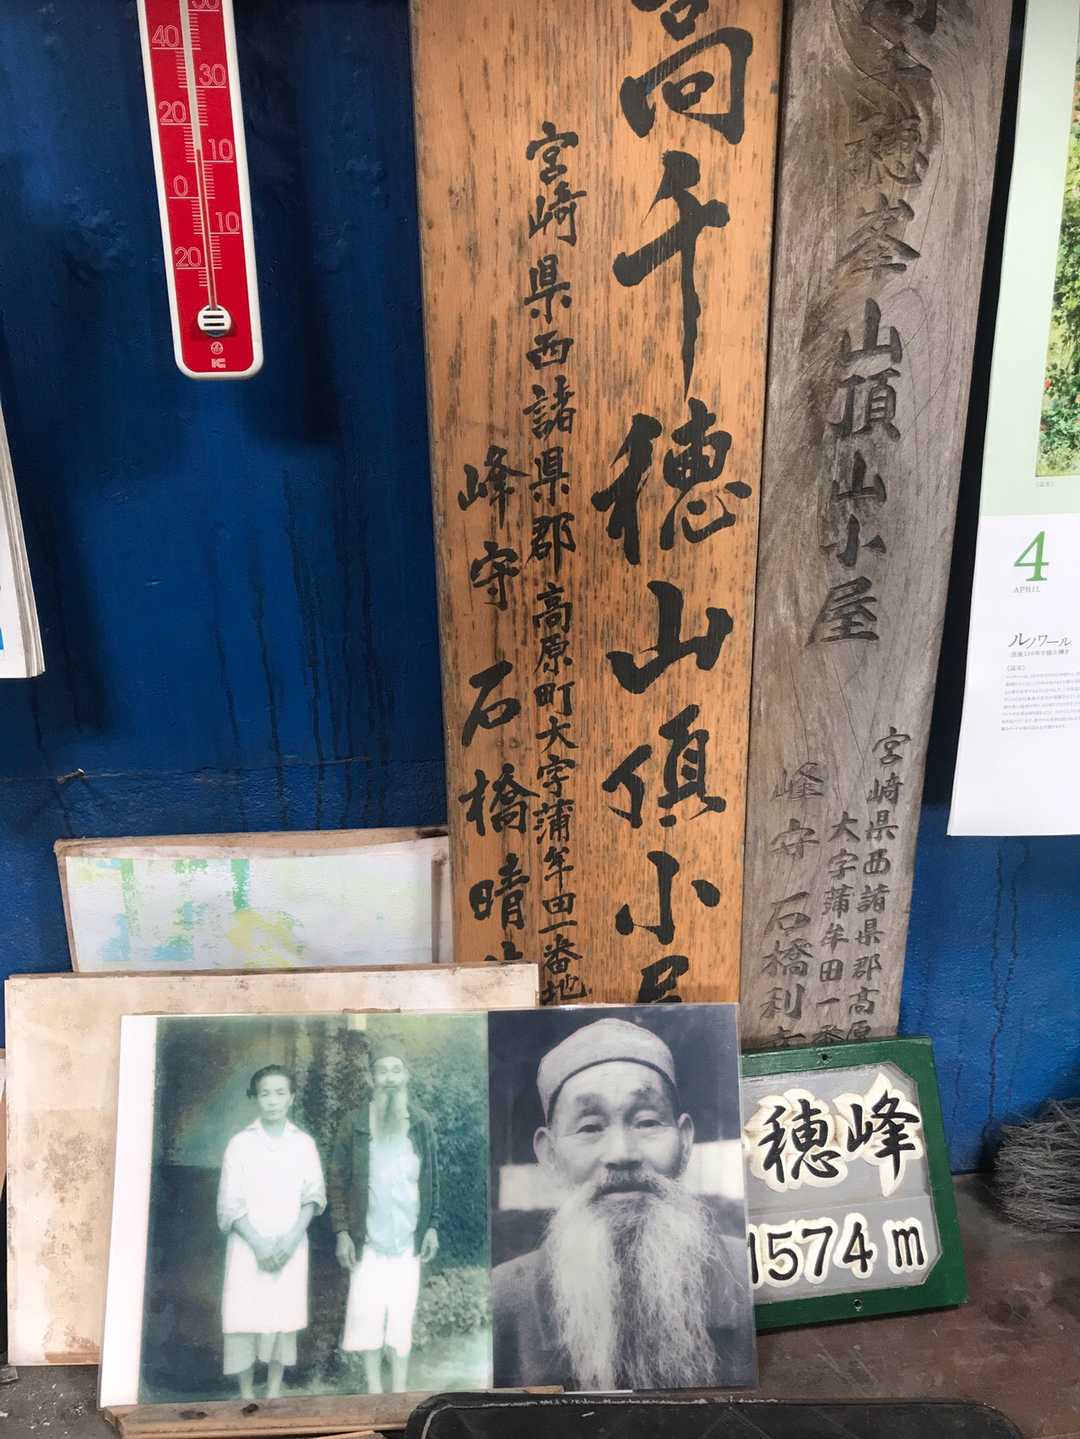 50
40
30
20
10
0
10
20
高千穂山頂小屋
宮崎県西諸県郡高原町大字蒲牟田一番地
峰守 石橋晴
穂峯山頂山小屋
宮崎県西諸県郡高原
大字蒲牟田一番
峰守 石橋利
4
APRIL
ルノワール
穂峰
1574m